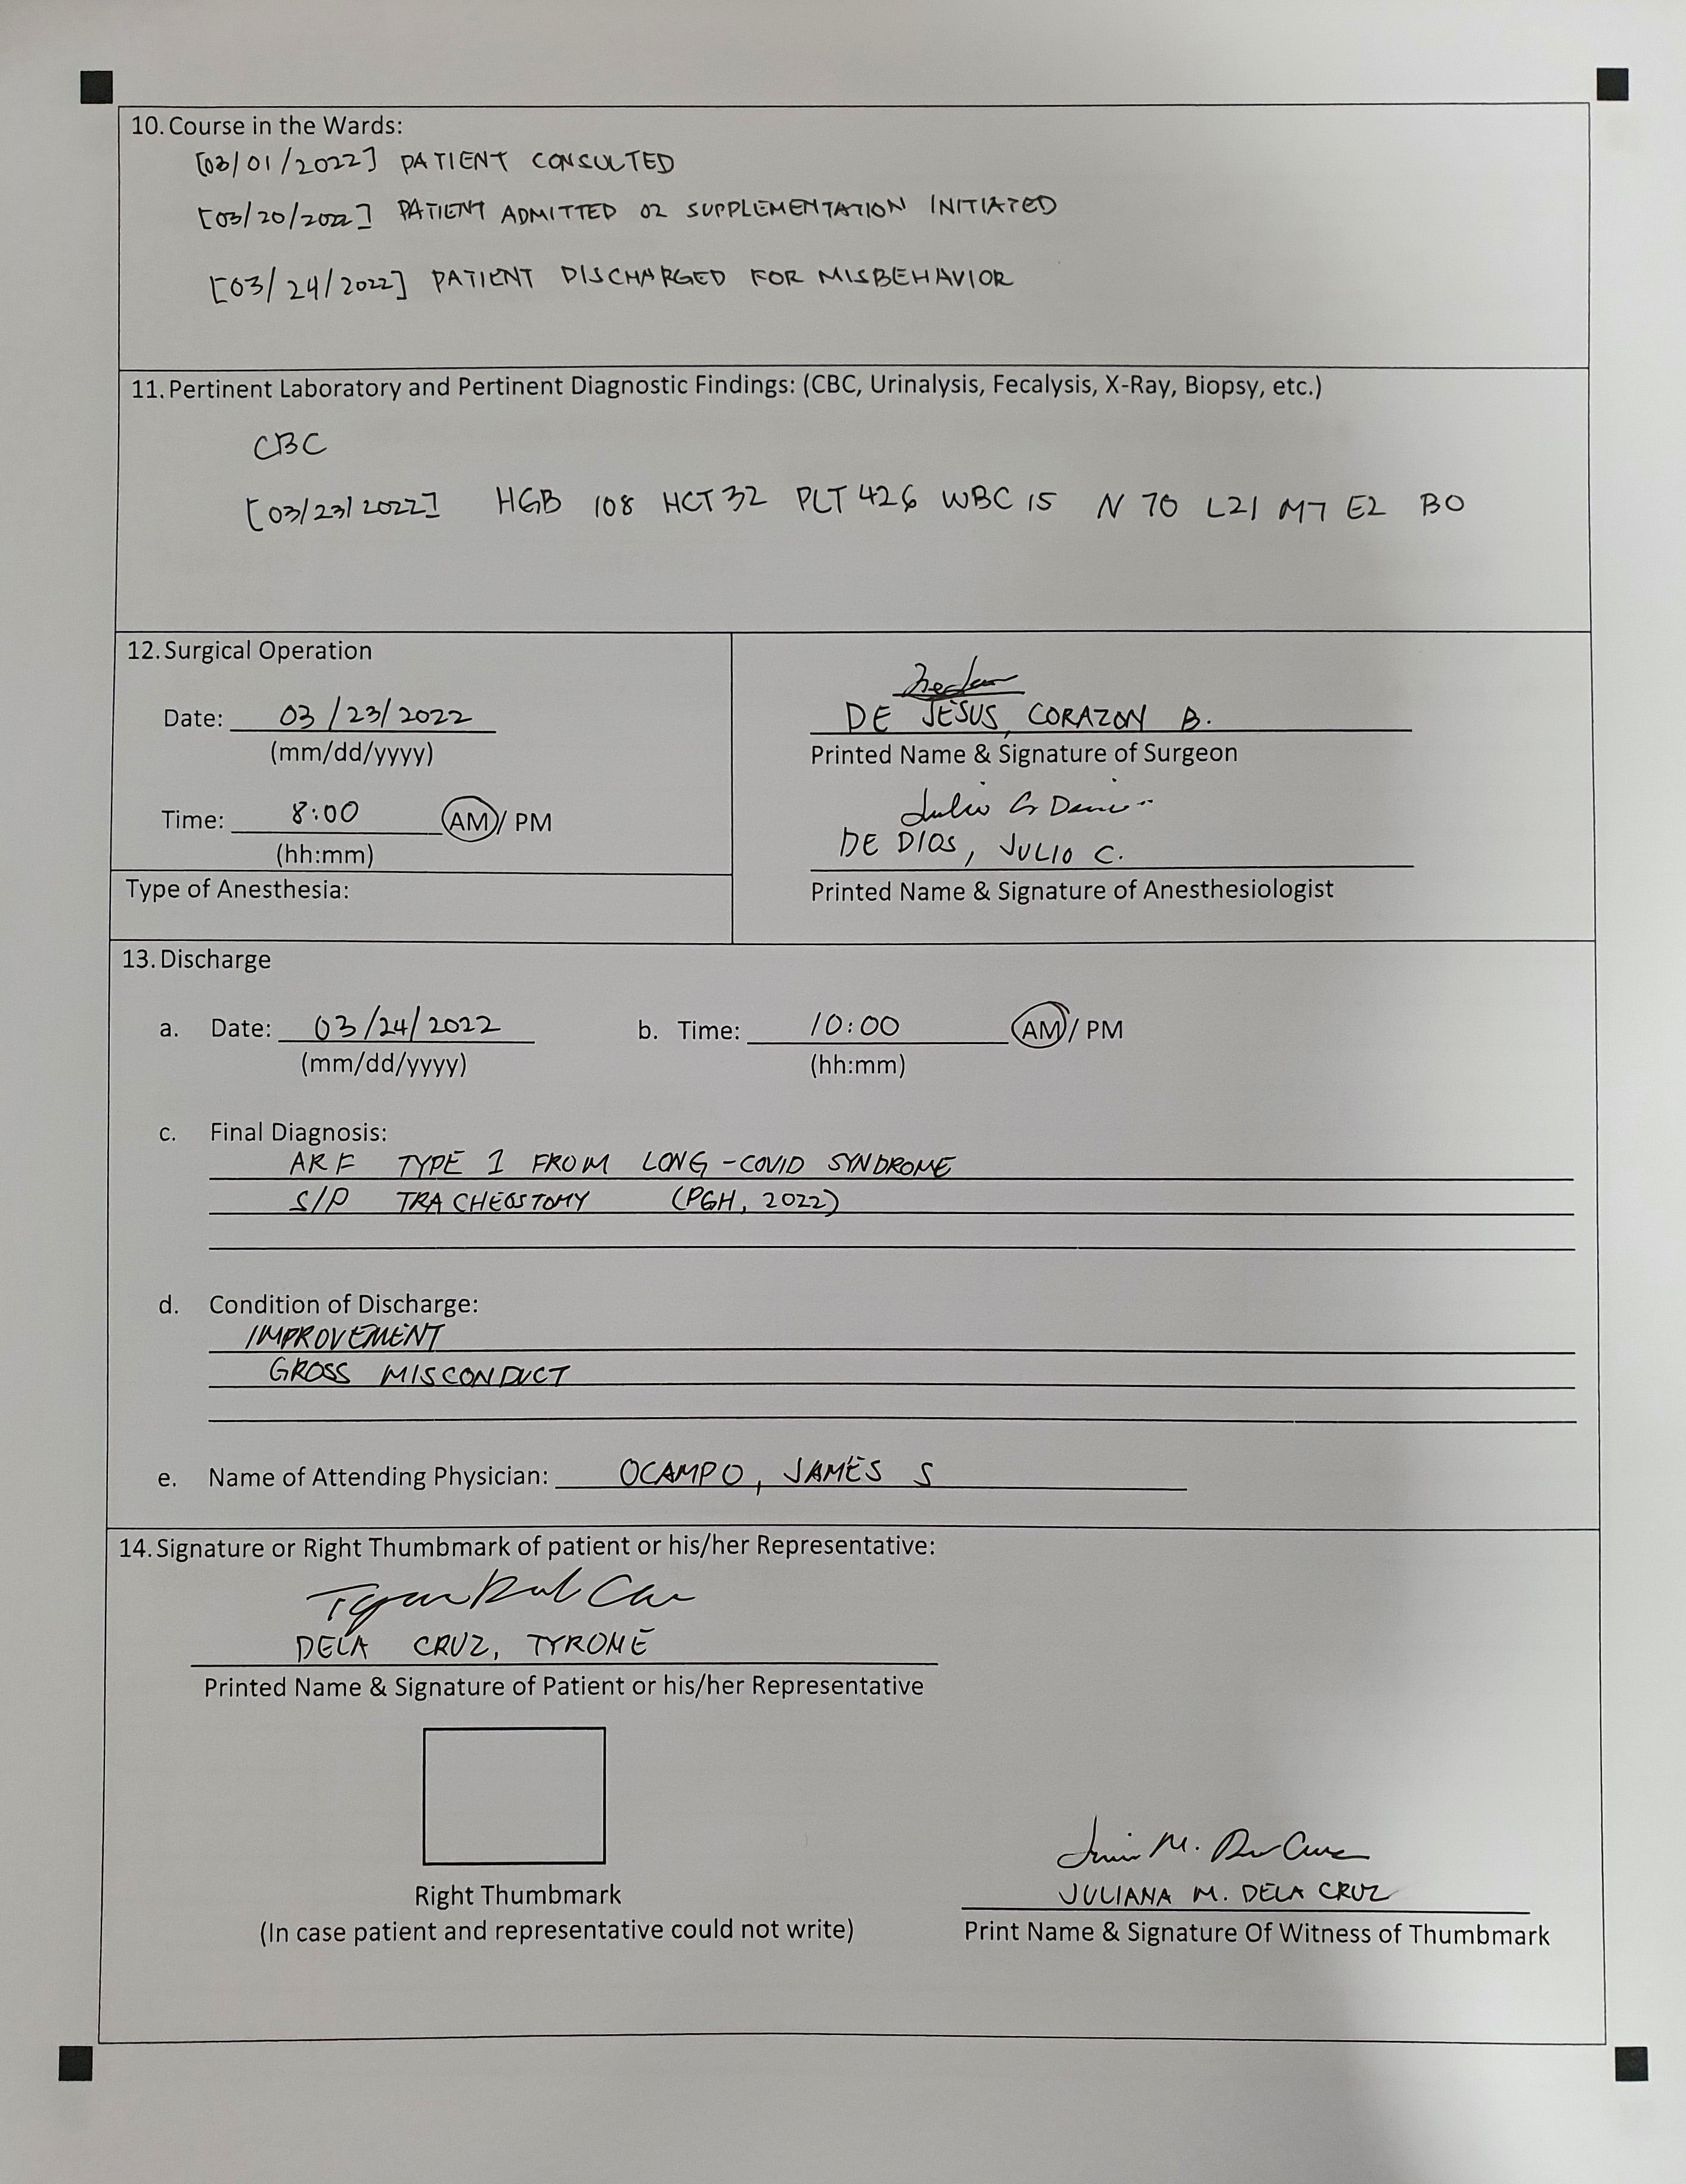 10. Course in the Wards:
[03/01/2022] PATIENT CONSULTED
[03/20/2022] PATIENT ADMITTED O2 SUPPLEMENTATION INITIATED
[03/24/2022] PATIENT DISCHARGED FOR MISBEHAVIOR
11. Pertinent Laboratory and Pertinent Diagnostic Findings: (CBC, Urinalysis, Fecalysis, X-Ray, Biopsy, etc.)
CBC
[03/23/2022] HGB 108 HCT 32 PLT 426 WBC 15 N 70 L21 M7 E2 B0
12. Surgical Operation
Date: 03/23/2022
(mm/dd/yyyy)
Time: 8:00 AM / PM
(hh:mm)
Type of Anesthesia:
DE JESUS, CORAZON B.
Printed Name & Signature of Surgeon
DE DIOS, JULIO C.
Printed Name & Signature of Anesthesiologist
13. Discharge
a. Date: 03/24/2022 b. Time: 10:00 AM / PM
(mm/dd/yyyy) (hh:mm)
c. Final Diagnosis:
ARF TYPE 1 FROM LONG-COVID SYNDROME
S/P TRACHEOSTOMY (PGH, 2022)
d. Condition of Discharge:
IMPROVEMENT
GROSS MISCONDUCT
e. Name of Attending Physician: OCAMPO, JAMES S
14. Signature or Right Thumbmark of patient or his/her Representative:
DELA CRUZ, TYRONE
Printed Name & Signature of Patient or his/her Representative
Right Thumbmark
(In case patient and representative could not write)
JULIANA M. DELA CRUZ
Print Name & Signature Of Witness of Thumbmark